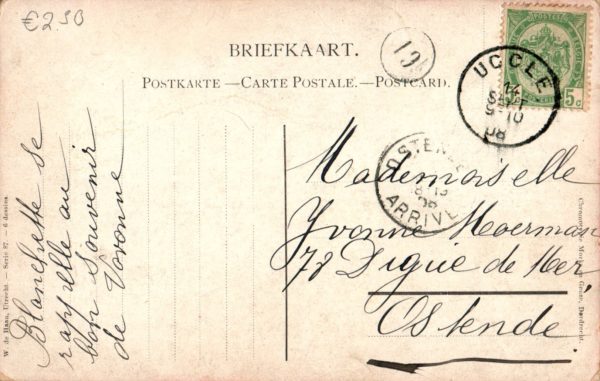 €2.50
BRIEFKAART.
POSTKARTE — CARTE POSTALE. — POSTCARD.
19
POSTES
5c
UCCLE
14
SEPT
9-10
08
OSTENDE
8-19
08
ARRIVE
Mademoiselle
Yvonne Moerman
72 Digue de Mer
Ostende.
Blanchette se
rappelle au
bon souvenir
de Vovonne
W. de Haan, Utrecht. — Serie 87. — 6 dessins.
Dordrecht.